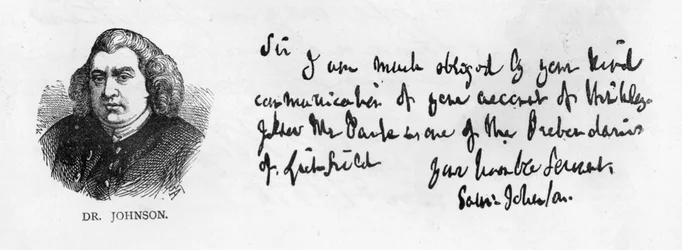 Sir
I am much obliged by your kind
communication of your account of Hinkley.
I know Mr Carte is one of the Prebendaries
of Lichfield your humble Servant,
Sam: Johnson.
DR. JOHNSON.